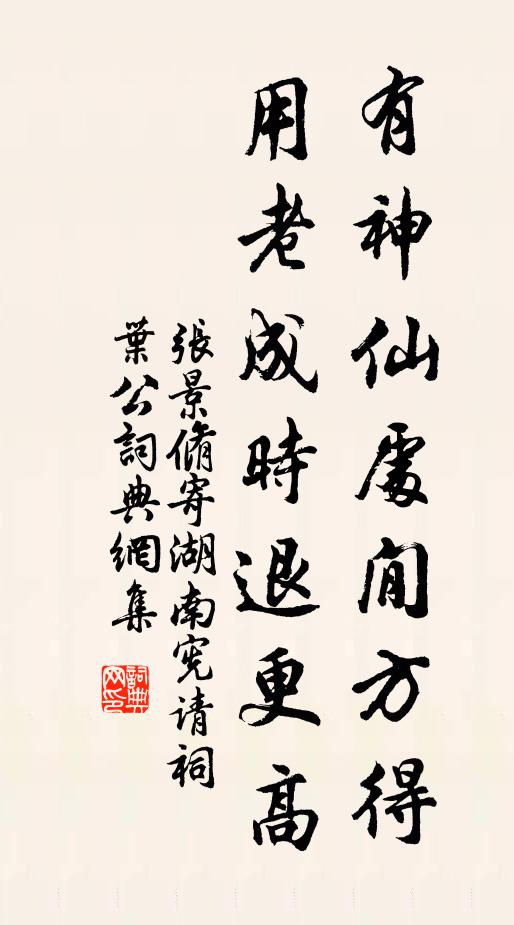 有神仙處閒方得
用老成時退更高
張景脩寄湖南宪请祠
葉公詞典網集
詞典
网印